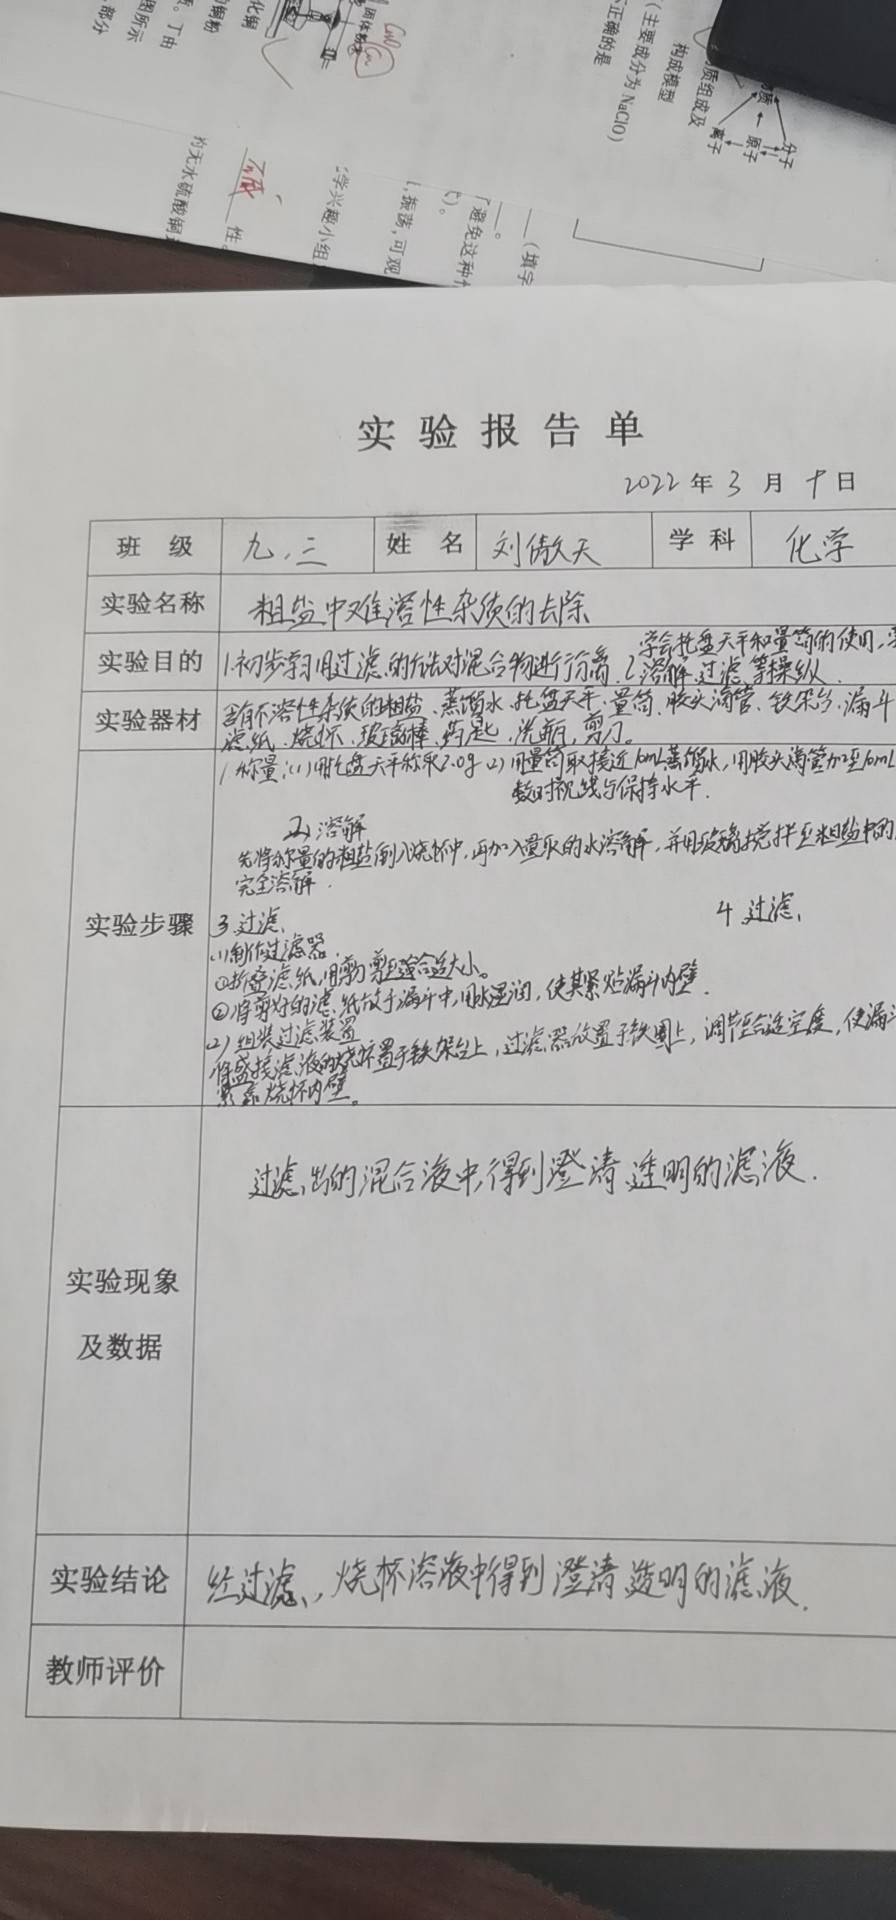 分子
原子
离子
物质
质组成及
构成模型
(主要成分为NaClO)
不正确的是
固体粉末
Cu
化铜
铜粉
。丁由
图所示
部分
(填字
“避免这种
,振荡,可观
学兴趣小组
性
的无水硫酸铜
实验报告单
2022年3月十日
班级 九.三 姓名 刘傲天 学科 化学
实验名称 粗盐中难溶性杂质的去除
学会托盘天平和量筒的使用,
实验目的 1.初步学习用过滤的方法对混合物进行分离 2.溶解、过滤等操纵.
实验器材 含有不溶性杂质的粗盐、蒸馏水、托盘天平、量筒、胶头滴管、铁架台、漏斗
滤纸、烧杯、玻璃棒、药匙、洗瓶、剪刀。
1.称量:(1)用托盘天平称取2.0g (2)用量筒取接近10mL蒸馏水,用胶头滴管加至10mL
数时视线与保持水平.
2.溶解
先将称量的粗盐倒入烧杯中,再加入量取的水溶解,并用玻璃搅拌至粗盐中的
完全溶解.
实验步骤 3.过滤、 4.过滤、
(1)制作过滤器
①折叠滤纸,用剪刀剪至适合大小。
②将剪好的滤纸放于漏斗中,用水湿润,使其紧贴漏斗内壁.
(2)组装过滤装置
将盛接滤液的烧杯置于铁架台上,过滤器放置于铁圈上,调节至合适空度,使漏斗
紧靠烧杯内壁。
过滤出的混合液中,得到澄清透明的滤液.
实验现象
及数据
实验结论 经过滤、,烧杯溶液中得到澄清透明的滤液.
教师评价